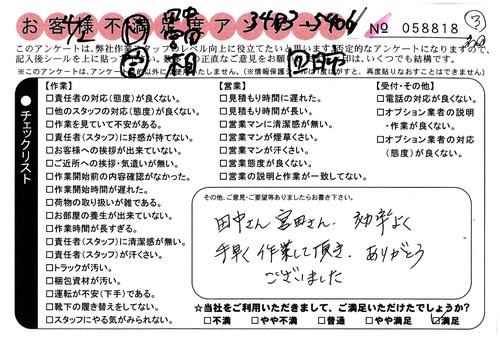 お客様不満足度アン
3483→5406
№ 058818
③
このアンケートは、弊社作業スタッフのレベル向上に役立てたいと思います。否定的なアンケートになりますので、
記入後シールを上に貼って
正直なご意見をお願い
は、いくつでも結構です。
【作業】
□責任者の対応(態度)が良くない。
□他のスタッフの対応(態度)が良くない。
□作業を見ていて不安がある。
□責任者(スタッフ)に好感が持てない。
□お客様への挨拶が出来ていない。
□ご近所への挨拶・気遣いが無い。
□作業開始前の内容確認がなかった。
□作業開始時間が遅れた。
□荷物の取り扱いが雑である。
□お部屋の養生が出来ていない。
□作業時間が長すぎる。
□責任者(スタッフ)に清潔感が無い。
□責任者(スタッフ)が汗くさい。
□トラックが汚い。
□梱包資材が汚い。
□運転が不安(下手)である。
□靴下の履き替えをしてない。
□スタッフにやる気がみられない。
【営業】
□見積もり時間に遅れた。
□見積もり時間が長い。
□営業マンに清潔感が無い。
□営業マンが煙草くさい。
□営業マンが汗くさい。
□営業態度が良くない。
□営業の説明と作業が一致してない。
【受付・その他】
□電話の対応が良くない。
□オプション業者の説明
・作業が良くない。
□オプション業者の対応
(態度)が良くない。
チェックリスト
その他、ご意見・ご要望等ありましたらお書き下さい。
田中さん 宮田さん、効率よく
手早く作業して頂き、ありがとう
ございました
★当社をご利用いただきまして、ご満足いただけたでしょうか?
□不満 □やや不満 □普通 □やや満足 ☑満足